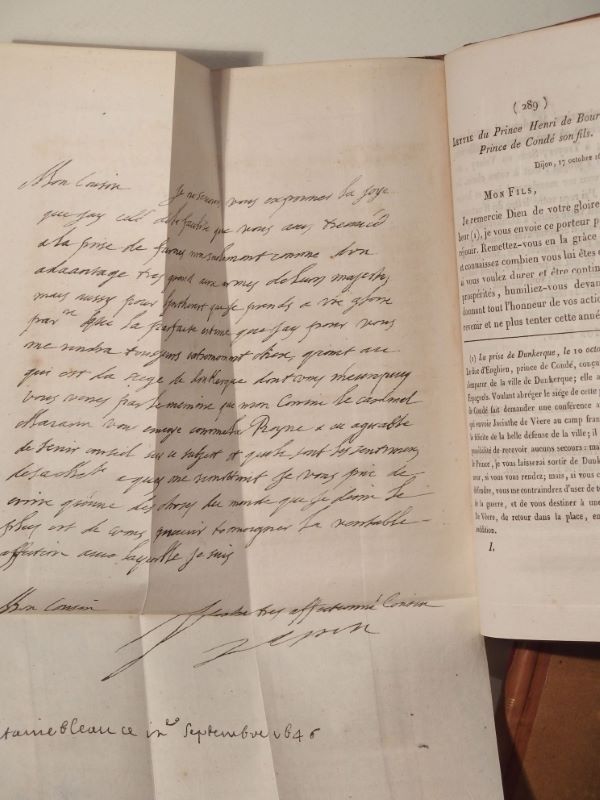 Mon Cousin Je ne scaurois vous exprimer la joye
que jay
a la prise de furnes non seulement comme bon
advantage tres grand aux armes de leurs majestes
mais aussy pour que je prends a vre gloire
par la parfaite estime que jay pour vous
me rendra tousjours chere, quant au
qui est la siege de donkerque dont vous
vous par le memoire que mon Comme le cardinal
Mazarin vous envoye comme la Reyne a eu agreable
de tenir conseil sur ce subject et quels sont les sentimens
Je vous prie de
croire quune des choses du monde que je desire le
plus est de vous pouvoir tesmoigner la veritable
affection avec laquelle je suis
Mon Cousin
tres affectionné Cousin
tainebleau ce Septembre 1646
( 289 )
LETTRE du Prince Henri de Bour
Prince de Condé son fils.
Dijon, 17 octobre 16
MON FILS,
Je remercie Dieu de votre gloire
heur (1), je vous envoie ce porteur p
réjouir. Remettez-vous en la grâce
et connaissez combien vous lui êtes
si vous voulez durer et être contin
prospérités, humiliez-vous devan
donnant tout l'honneur de vos actio
revenir et ne plus tenter cette anné
(1) La prise de Dunkerque, le 10 octo
Le duc d'Enghien, prince de Condé, conçu
s'emparer de la ville de Dunkerque; elle a
Espagnols. Voulant abréger le siège de cette
de Condé fait demander une conférence a
qui envoie Jacinthe de Vèere au camp fran
le félicite de la belle défense de la ville; il
possibilité de recevoir aucuns secours: ma
le Prince, je vous laisserai sortir de Dun
neur, si vous vous rendez; mais, si vous c
défendre, vous me contraindrez d'user de to
de la guerre, et de vous destiner à une
de Vèere, de retour dans la place, en
reddition.
I.